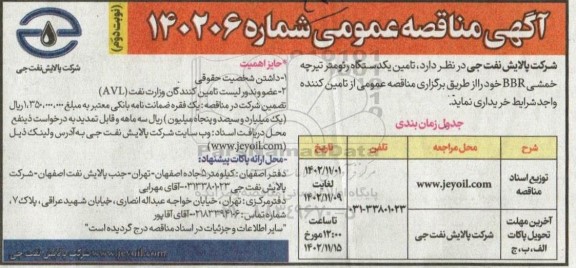 آگهی مناقصه عمومی شماره ۱۴۰۲۰۶
(نوبت دوم)
شرکت پالایش نفت جی
شرکت پالایش نفت جی در نظر دارد، تامین یکدستگاه رئومتر تیرچه
خمشی BBR خود را از طریق برگزاری مناقصه عمومی از تامین کننده
واجد شرایط خریداری نماید.
جدول زمان بندی
شرح
محل مراجعه
تلفن
تاریخ
توزیع اسناد
مناقصه
www.jeyoil.com
۰۳۱-۳۳۸۰۱۰۲۳
۱۴۰۲/۱۱/۰۱
لغایت
۱۴۰۲/۱۱/۰۹
آخرین مهلت
تحویل پاکات
الف، ب، ج
شرکت پالایش نفت جی
تا ساعت
۱۳:۰۰ مورخ
۱۴۰۲/۱۱/۱۵
*حایز اهمیت
۱-داشتن شخصیت حقوقی
۲-عضو وندور لیست تامین کنندگان وزارت نفت (AVL)
تضمین شرکت در مناقصه: یک فقره ضمانت نامه بانکی معتبر به مبلغ ۱،۳۵۰،۰۰۰،۰۰۰ ریال
(یک میلیارد و سیصد و پنجاه میلیون) ریال سه ماهه و قابل تمدید به درخواست ذینفع
محل دریافت اسناد: وب سایت شرکت پالایش نفت جی به آدرس ولینک ذیل
(www.jeyoil.com)
-محل ارائه پاکات پیشنهاد:
دفتر اصفهان: کیلومتر ۵ جاده اصفهان-تهران-جنب پالایش نفت اصفهان-شرکت
پالایش نفت جی ۰۳۱۳۳۸۰۱۰۲۳ آقای مهرابی
دفتر مرکزی: تهران، خیابان خواجه عبداله انصاری، خیابان شهید عراقی، پلاک ۷،
شماره تماس: ۰۲۱۸۳۳۹۴۱۰۶ آقای آقاپور
"سایر اطلاعات و جزئیات در اسناد مناقصه درج گردیده است"
www.jeyoil.com شرکت پالایش نفت جی